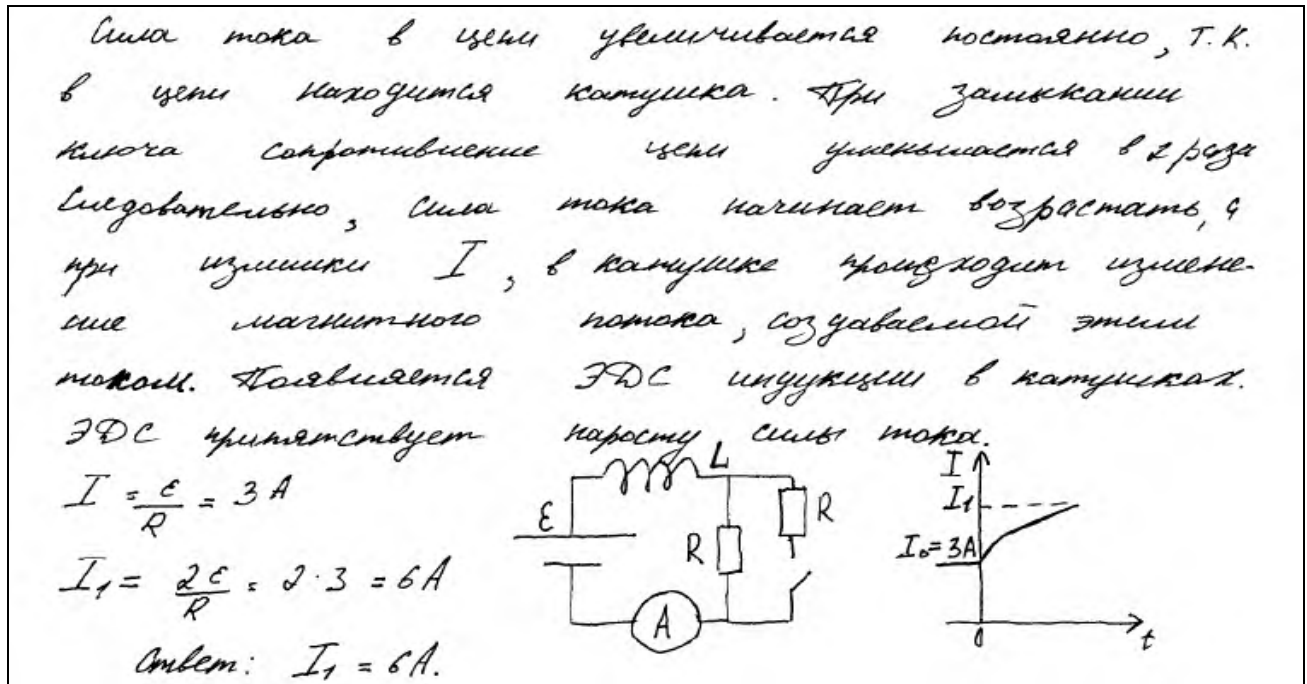 Сила тока в цепи увеличивается постоянно, т.к.
в цепи находится катушка. При замыкании
ключа сопротивление цепи уменьшается в 2 раза
Следовательно, сила тока начинает возрастать, а
при I, в катушке происходит измене-
ние магнитного потока, создаваемой этим
током. Появляется ЭДС индукции в катушках.
ЭДС припятствует наросту силы тока.
I = ε/R = 3 A
I₁ = 2ε/R = 2·3 = 6A
Ответ: I₁ = 6A.
L
ε
R
R
A
I
I₁
I₀=3A
0
t